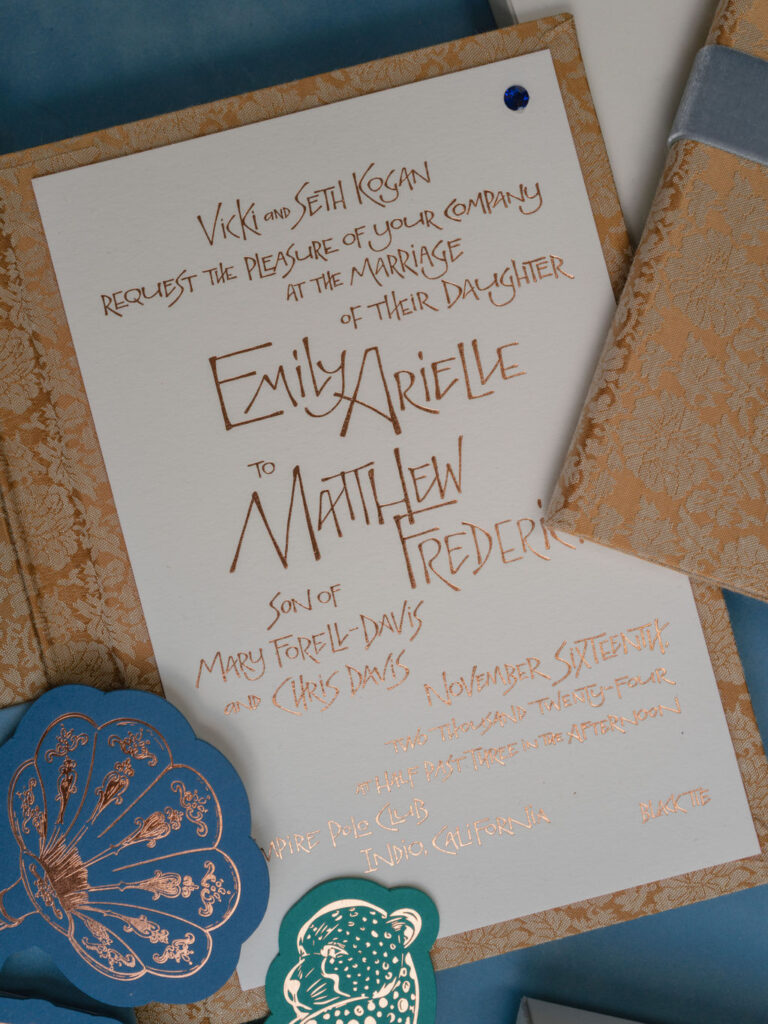 Vicki and Seth Kogan
request the pleasure of your company
at the marriage
of their daughter
Emily Arielle
to
Matthew
Frederi
son of
Mary Forell-Davis
and Chris Davis
November Sixteenth
two thousand twenty-four
at half past three in the afternoon
mpire Polo Club
Indio, California
Black tie